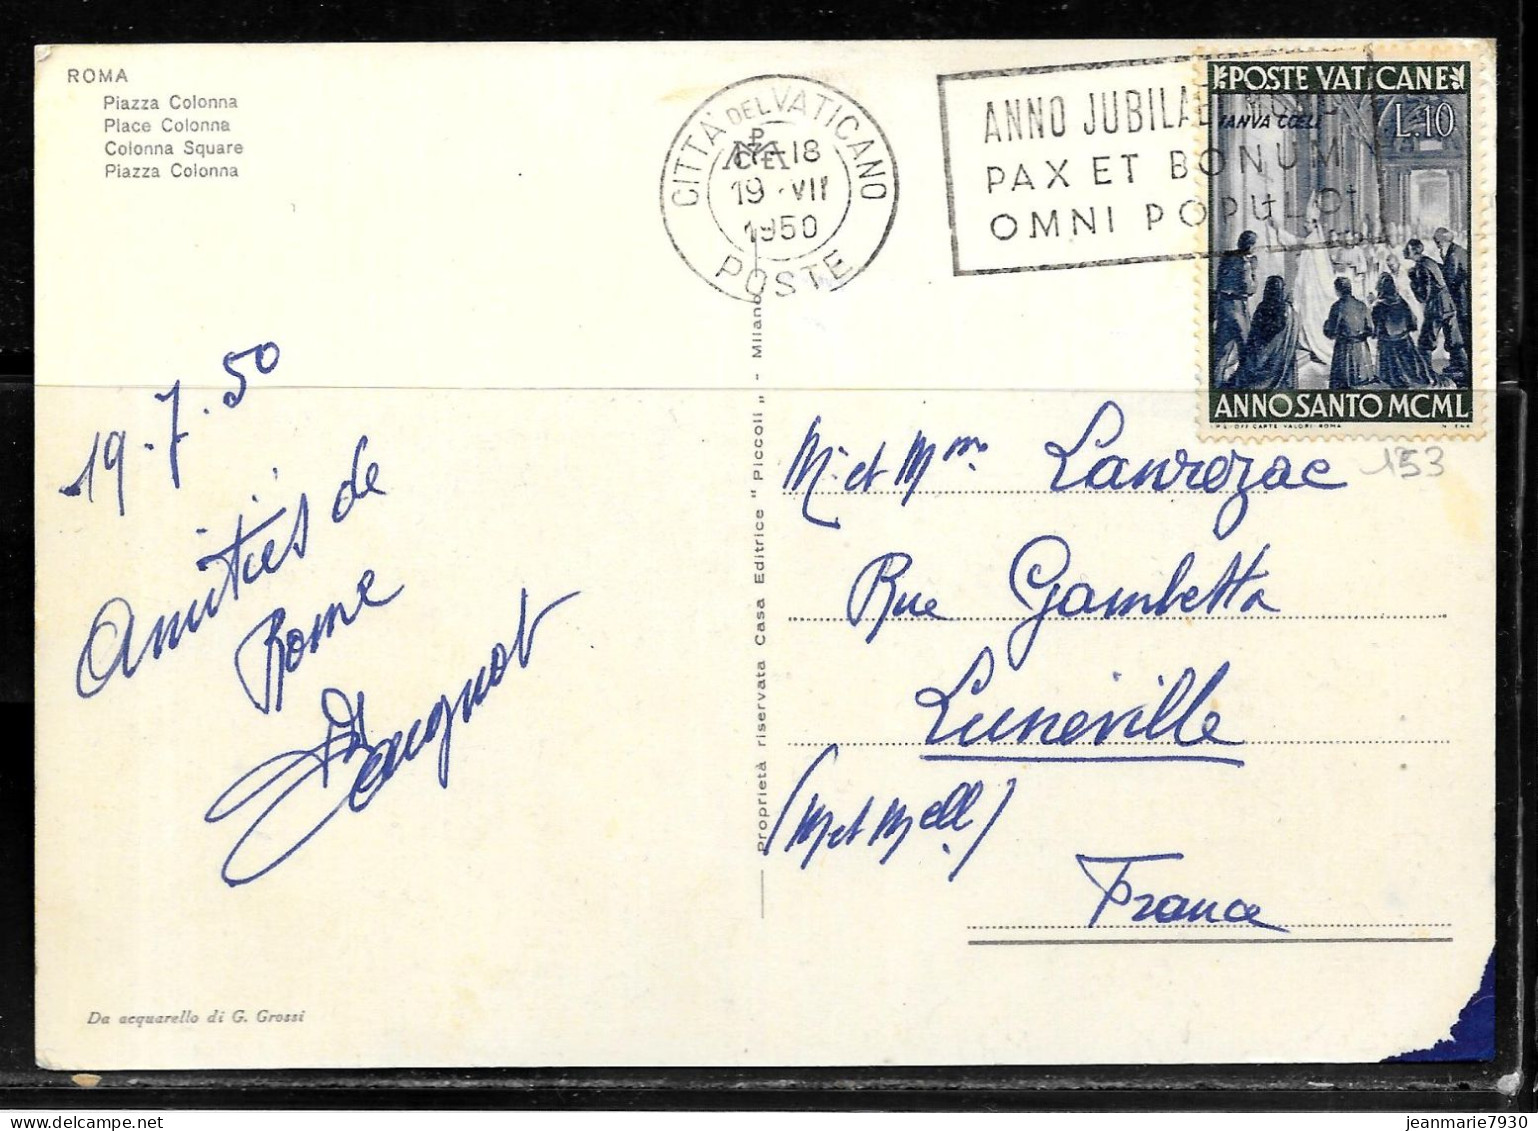 ROMA
Piazza Colonna
Place Colonna
Colonna Square
Piazza Colonna
CITTA DEL VATICANO
17-18
19 VII
1950
POSTE
ANNO JUBILAEI MCML
PAX ET BONUM
OMNI POPULO
POSTE VATICANE
IANVA CŒLI
L.10
ANNO SANTO MCML
19.7.50
Amitiés de
Rome
Proprietà riservata Casa Editrice "Piccoli" - Milano
M. et Mme Lanrezac
153
Rue Gambetta
Lunéville
(M et Mell)
France
Da acquarello di G. Grossi
jeanmarie7930